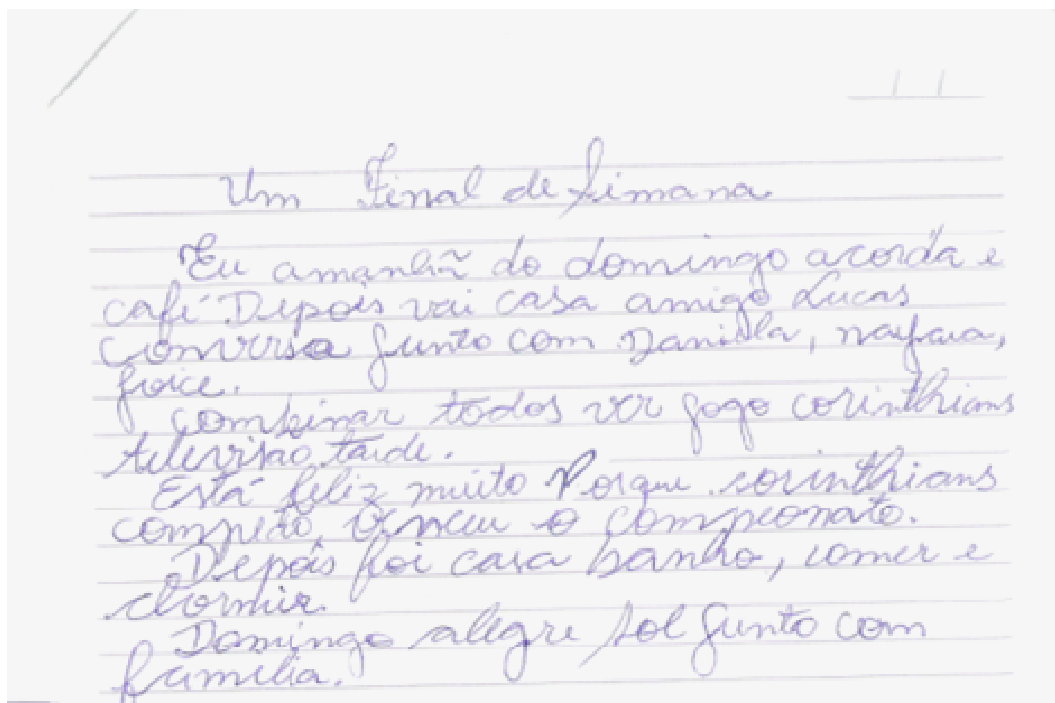 Um Final de Simana
Eu amanhã do domingo acorda e
café Depois vai casa amigo Lucas
conversa junto com Daniela, nayara,
joice.
combinar todos ver jogo corinthians
televisão tarde.
Está feliz muito Porque corinthians
venceu o campeonato.
Depois foi casa banho, comer e
dormir.
Domingo alegre sol junto com
familia.